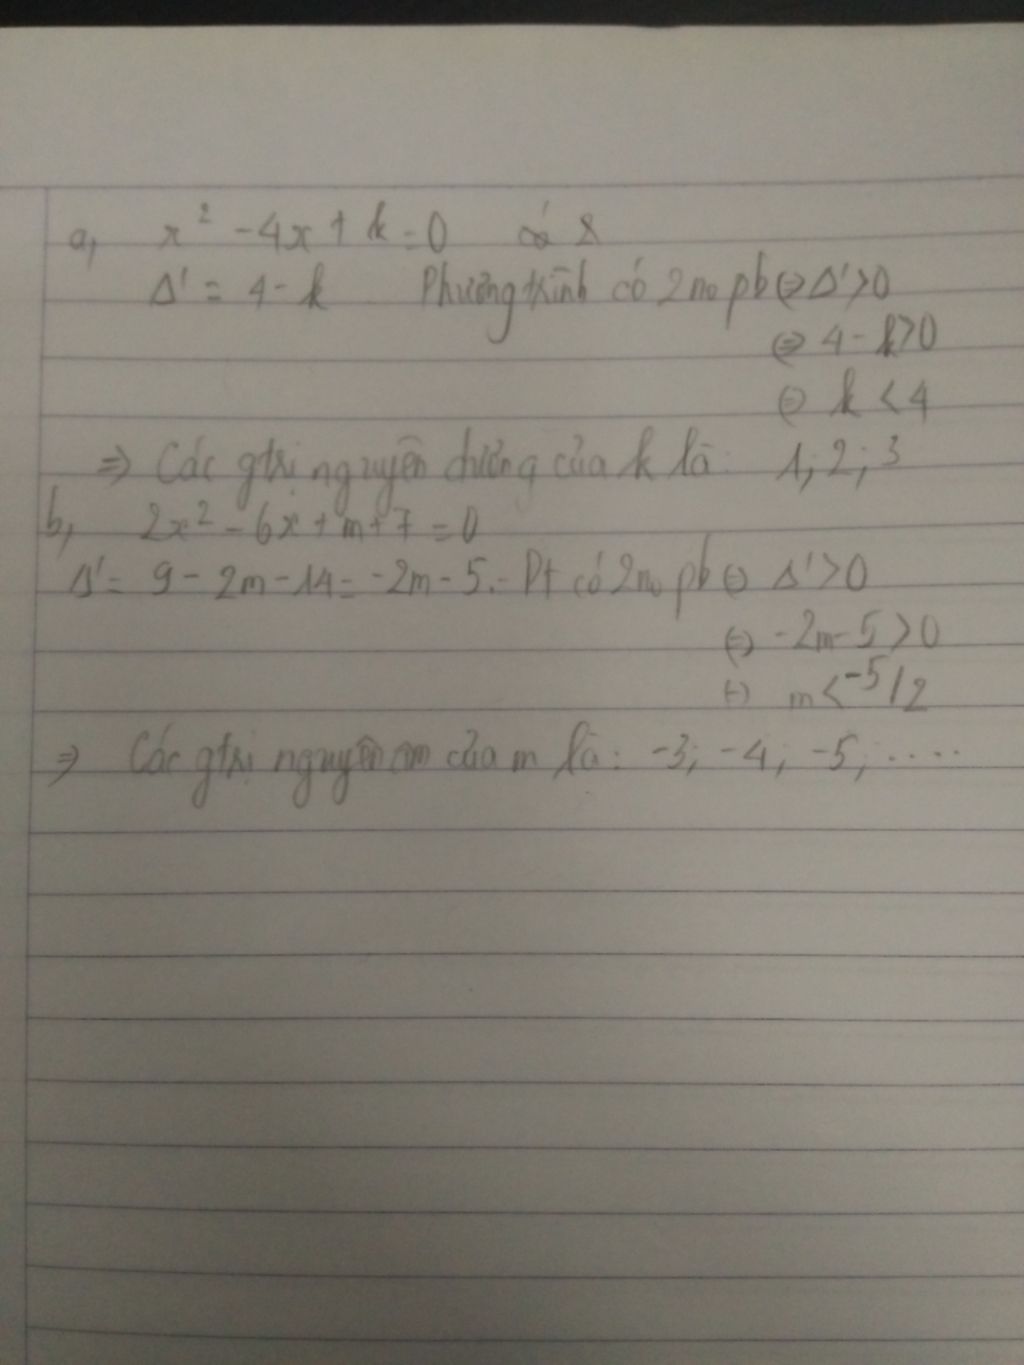 a, x² - 4x + k = 0 có
Δ' = 4 - k Phương trình có 2 no pb ⇔ Δ' > 0
⇔ 4 - k > 0
⇔ k < 4
⇒ Các gtrị nguyên dương của k là: 1; 2; 3
b, 2x² - 6x + m + 7 = 0
Δ' = 9 - 2m - 14 = -2m - 5. Pt có 2 no pb ⇔ Δ' > 0
⇔ -2m - 5 > 0
⇔ m < -5/2
⇒ Các gtrị nguyên âm của m là: -3; -4; -5; ....